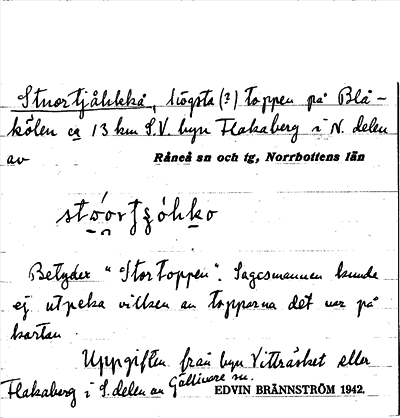 Stuortjåhkkå, högsta (?) toppen på Blå-
kölen ca 13 km S.V. byn Flakaberg i N. delen
av Råneå sn och tg, Norrbottens län
Betyder "Stortoppen". Sagesmannen kunde
ej utpeka vilken av topparna det var på
kartan
Uppgiften från byn Vitträsket eller
Flakaberg i S. delen av Gällivare sn.
EDVIN BRÄNNSTRÖM 1942.